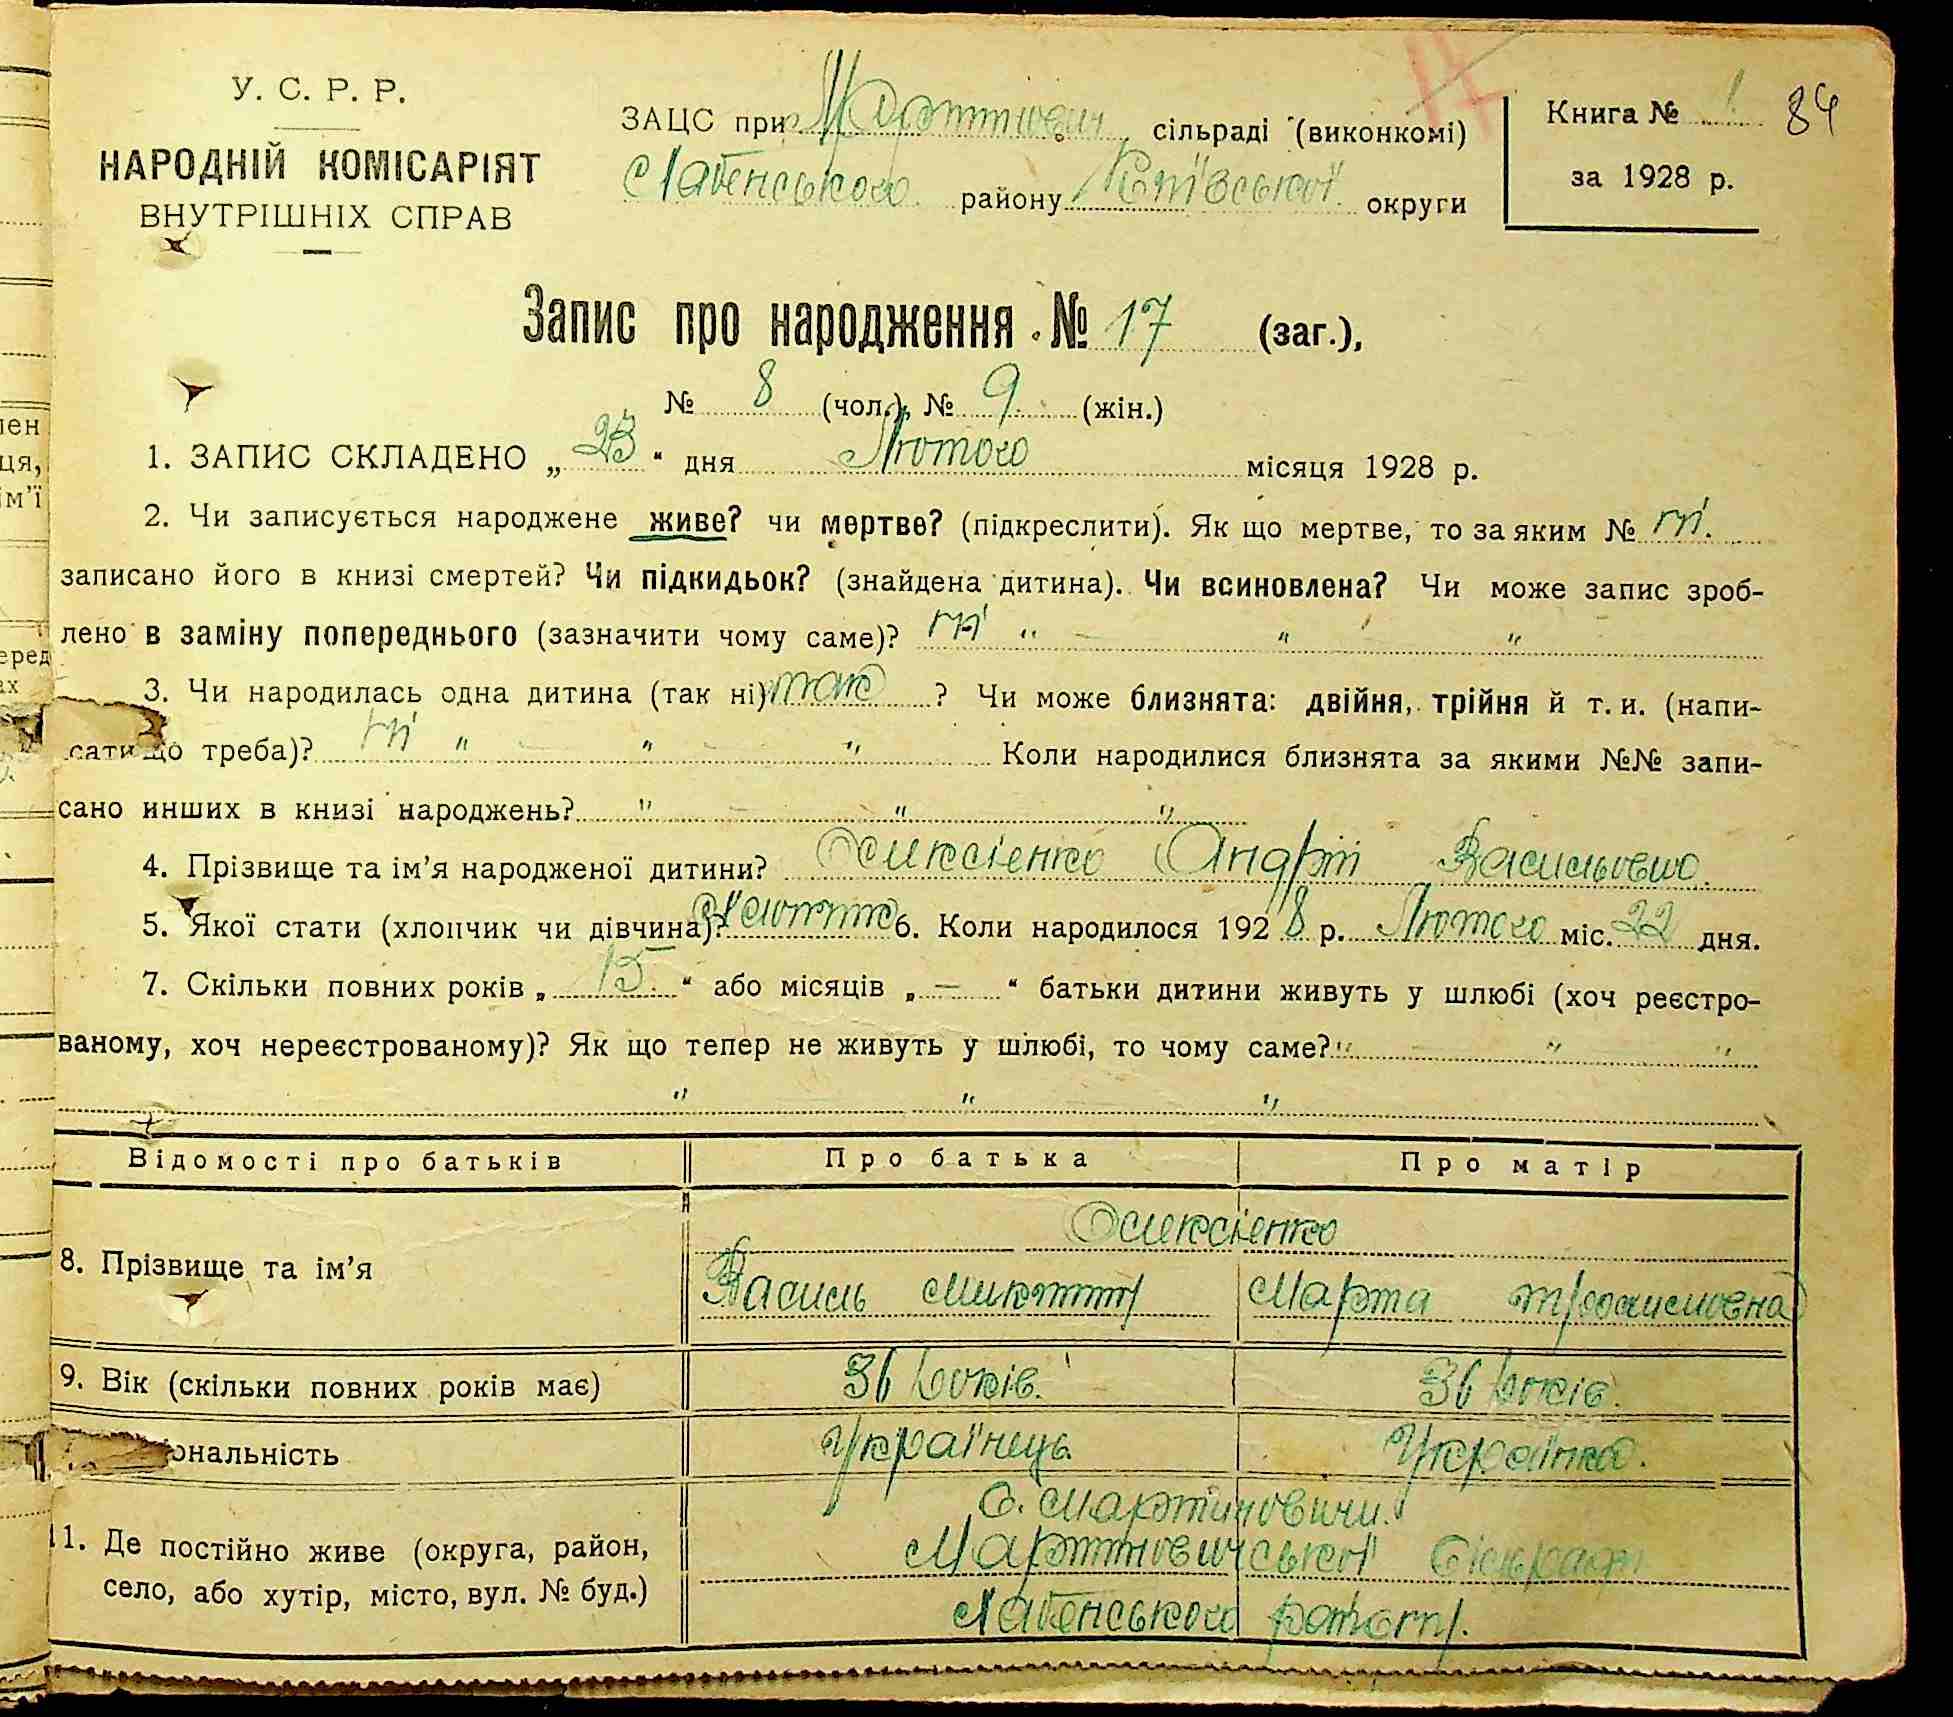 У. С. Р. Р.
НАРОДНІЙ КОМІСАРІЯТ
ВНУТРІШНІХ СПРАВ
ЗАЦС при сільраді (виконкомі)
району Київської округи
Книга № 1 84
за 1928 р.
Запис про народження № 17 (заг.),
№ 8 (чол.), № 9 (жін.)
1. ЗАПИС СКЛАДЕНО „ 23 “ дня Лютого місяця 1928 р.
2. Чи записується народжене живе? чи мертве? (підкреслити). Як що мертве, то за яким № ні.
записано його в книзі смертей? Чи підкидьок? (знайдена дитина). Чи всиновлена? Чи може запис зроб-
лено в заміну попереднього (зазначити чому саме)? ні " — " — "
3. Чи народилась одна дитина (так ні) так ? Чи може близнята: двійня, трійня й т. и. (напи-
сати що треба)? ні " — " — " Коли народилися близнята за якими №№ запи-
сано инших в книзі народжень? " — " — "
4. Прізвище та ім’я народженої дитини? Оликсієнко Андрій
5. Якої стати (хлопчик чи дівчина)? 6. Коли народилося 192 8 р. Лютого міс. 22 дня.
7. Скільки повних років „ 15 “ або місяців „ — “ батьки дитини живуть у шлюбі (хоч реєстро-
ваному, хоч нереєстрованому)? Як що тепер не живуть у шлюбі, то чому саме? " — " — "
" — " — "
Відомості про батьків Про батька Про матір
Оликсієнко
8. Прізвище та ім’я
Василь Марта
9. Вік (скільки повних років має) 36 років. 36 років.
ональність Українець Українка.
с. Мартиновичи.
11. Де постійно живе (округа, район, Мартиновичської Сільради
село, або хутір, місто, вул. № буд.)
району.